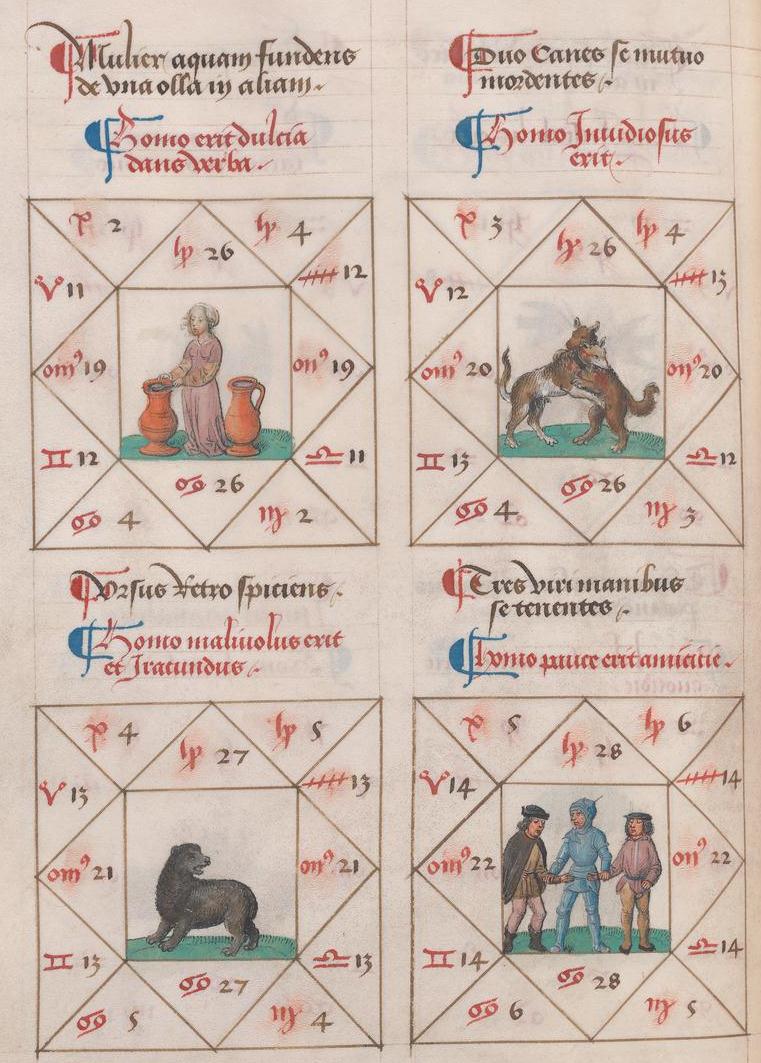 Mulier aquam fundens
de vna olla in aliam.
Homo erit dulcia
dans verba.
2
26
4
12
♈ 11
19
19
♊ 12
♎ 11
♋ 26
♋ 4
♍ 2
Duo Canes se mutuo
mordentes.
Homo Inuidiosus
erit.
3
26
4
13
♈ 12
20
20
♊ 13
♎ 12
♋ 26
♋ 4
♍ 3
Vrsus Retro spiciens.
Homo maliuolus erit
et Iracundus
4
27
5
13
♈ 13
21
21
♊ 13
♎ 13
♋ 27
♋ 5
♍ 4
Tres viri manibus
se tenentes
homo pauce erit amicitie.
5
28
6
14
♈ 14
22
22
♊ 14
♎ 14
♋ 28
♋ 6
♍ 5